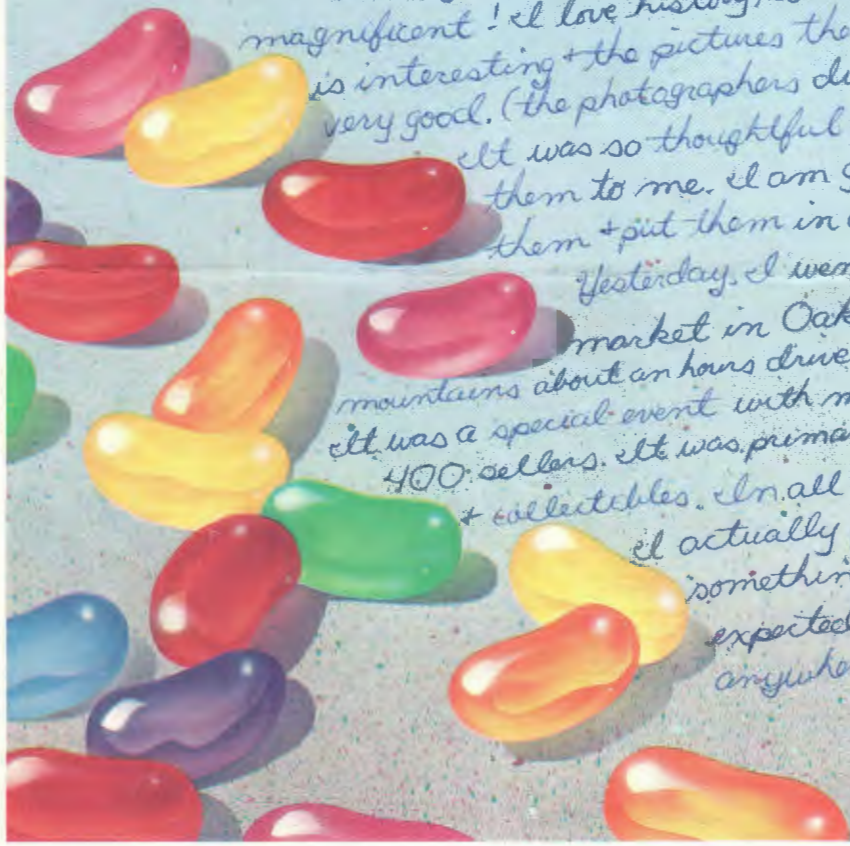 magnificent! I love history,
is interesting + the pictures
very good. (the photographers
It was so thoughtful
them to me. I am
them + put them in
Yesterday, I
market in
mountains about an hours drive
It was a special event with
400 sellers. It was
+ collectibles. In all
I actually

expected